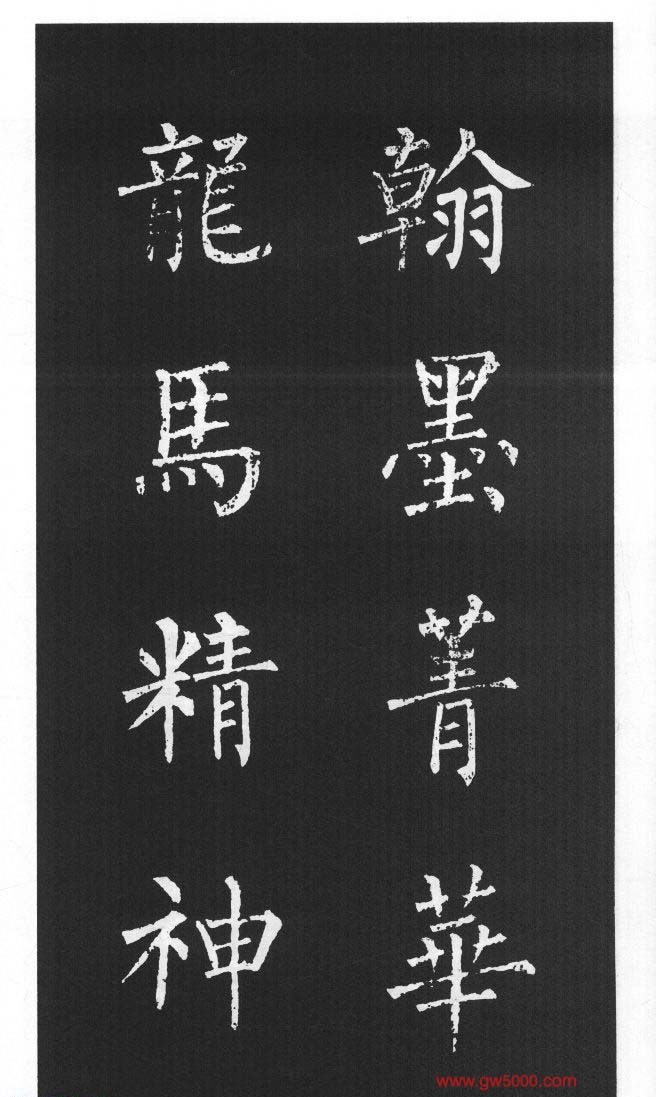 翰墨菁華
龍馬精神
www.gw5000.com